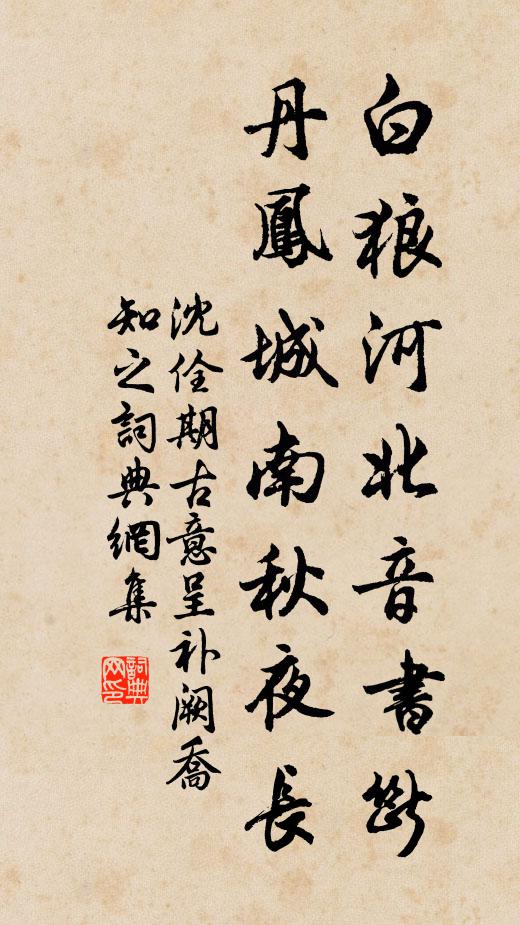 白狼河北音書斷
丹鳳城南秋夜長
沈佺期古意呈补阙喬
知之詞典網集
詞典网印